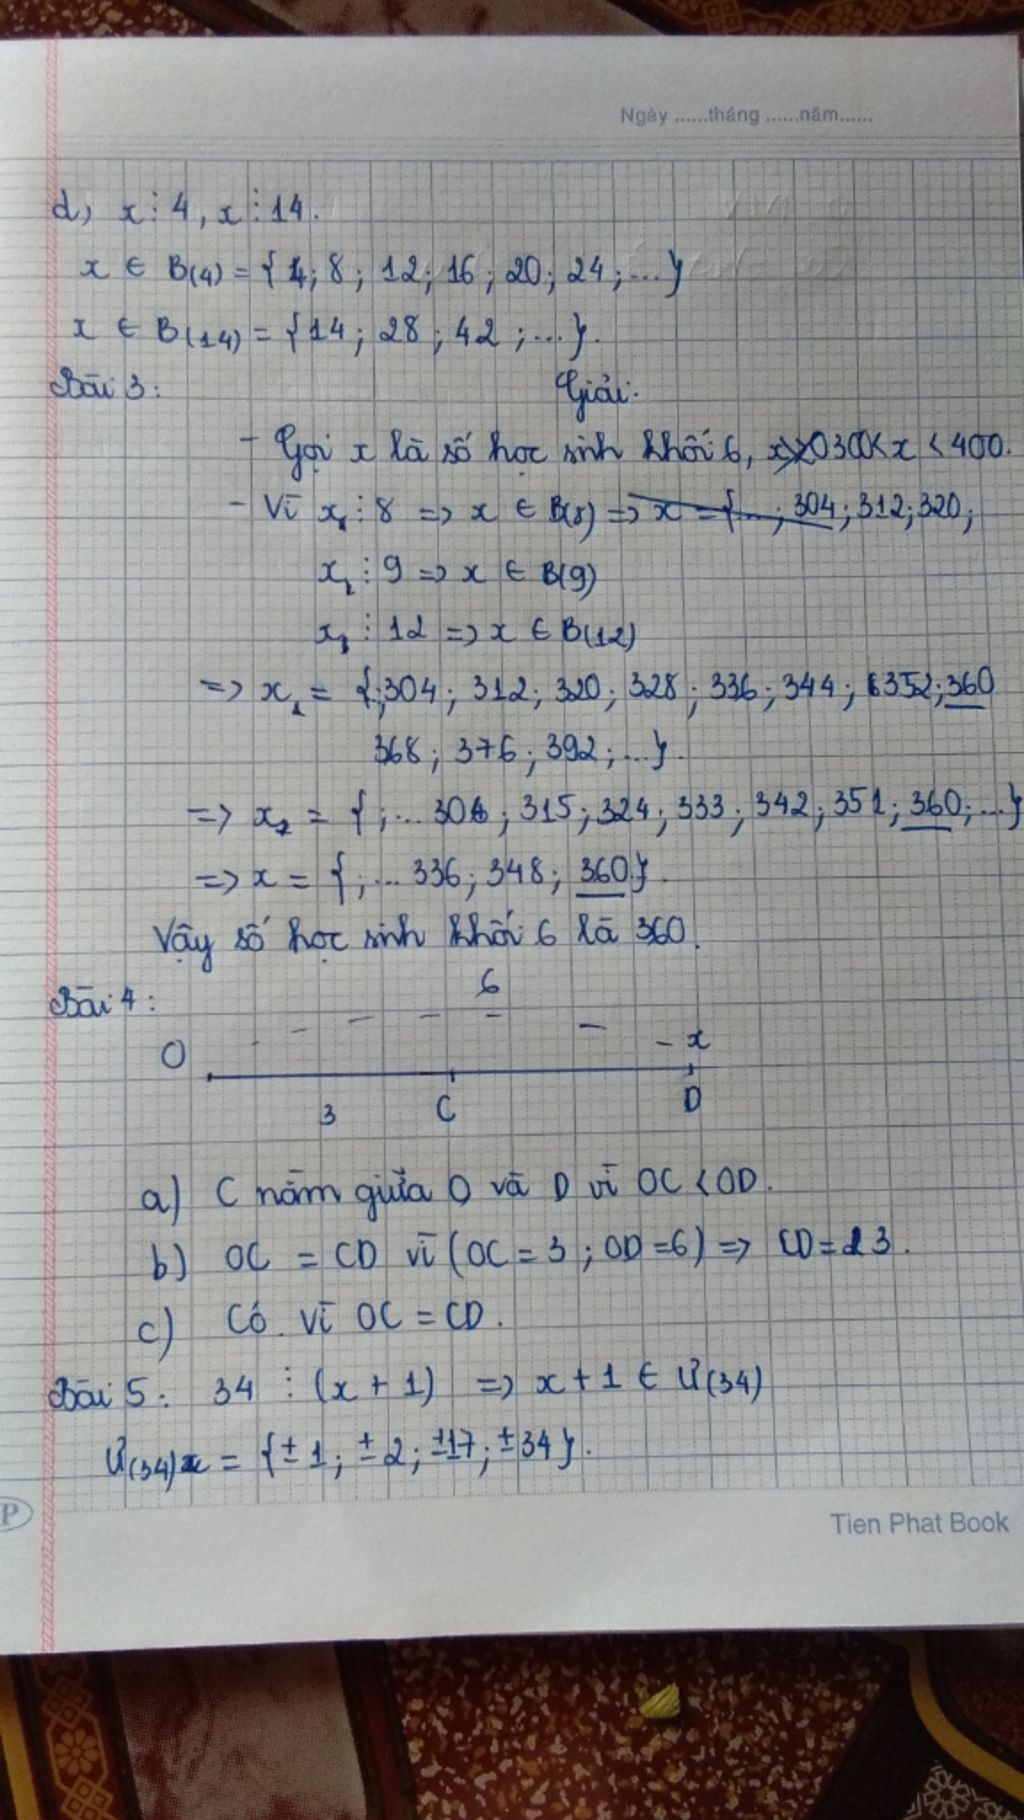 Ngày ......tháng ......năm......
d, x ⋮ 4, x ⋮ 14.
x ∈ B(4) = {4; 8; 12; 16; 20; 24; ...}
x ∈ B(14) = {14; 28; 42; ...}.
Bài 3:
Giải:
- Gọi x là số học sinh khối 6, 300 < x < 400.
- Vì x₁ ⋮ 8 => x ∈ B(8) => x = {...; 304; 312; 320;
x₂ ⋮ 9 => x ∈ B(9)
x₃ ⋮ 12 => x ∈ B(12)
=> x₁ = {; 304; 312; 320; 328; 336; 344; 352; 360
368; 376; 392; ...}.
=> x₂ = {; ... 306; 315; 324; 333; 342; 351; 360; ...}
=> x = {; ... 336; 348; 360}.
Vậy số học sinh khối 6 là 360.
Bài 4:
6
O x
3 C D
a) C nằm giữa O và D vì OC < OD.
b) OC = CD vì (OC = 3; OD = 6) => CD = 3.
c) Có. Vì OC = CD.
Bài 5: 34 ⋮ (x + 1) => x + 1 ∈ Ư(34)
Ư(34) = {± 1; ± 2; ±17; ±34}.
P
Tien Phat Book